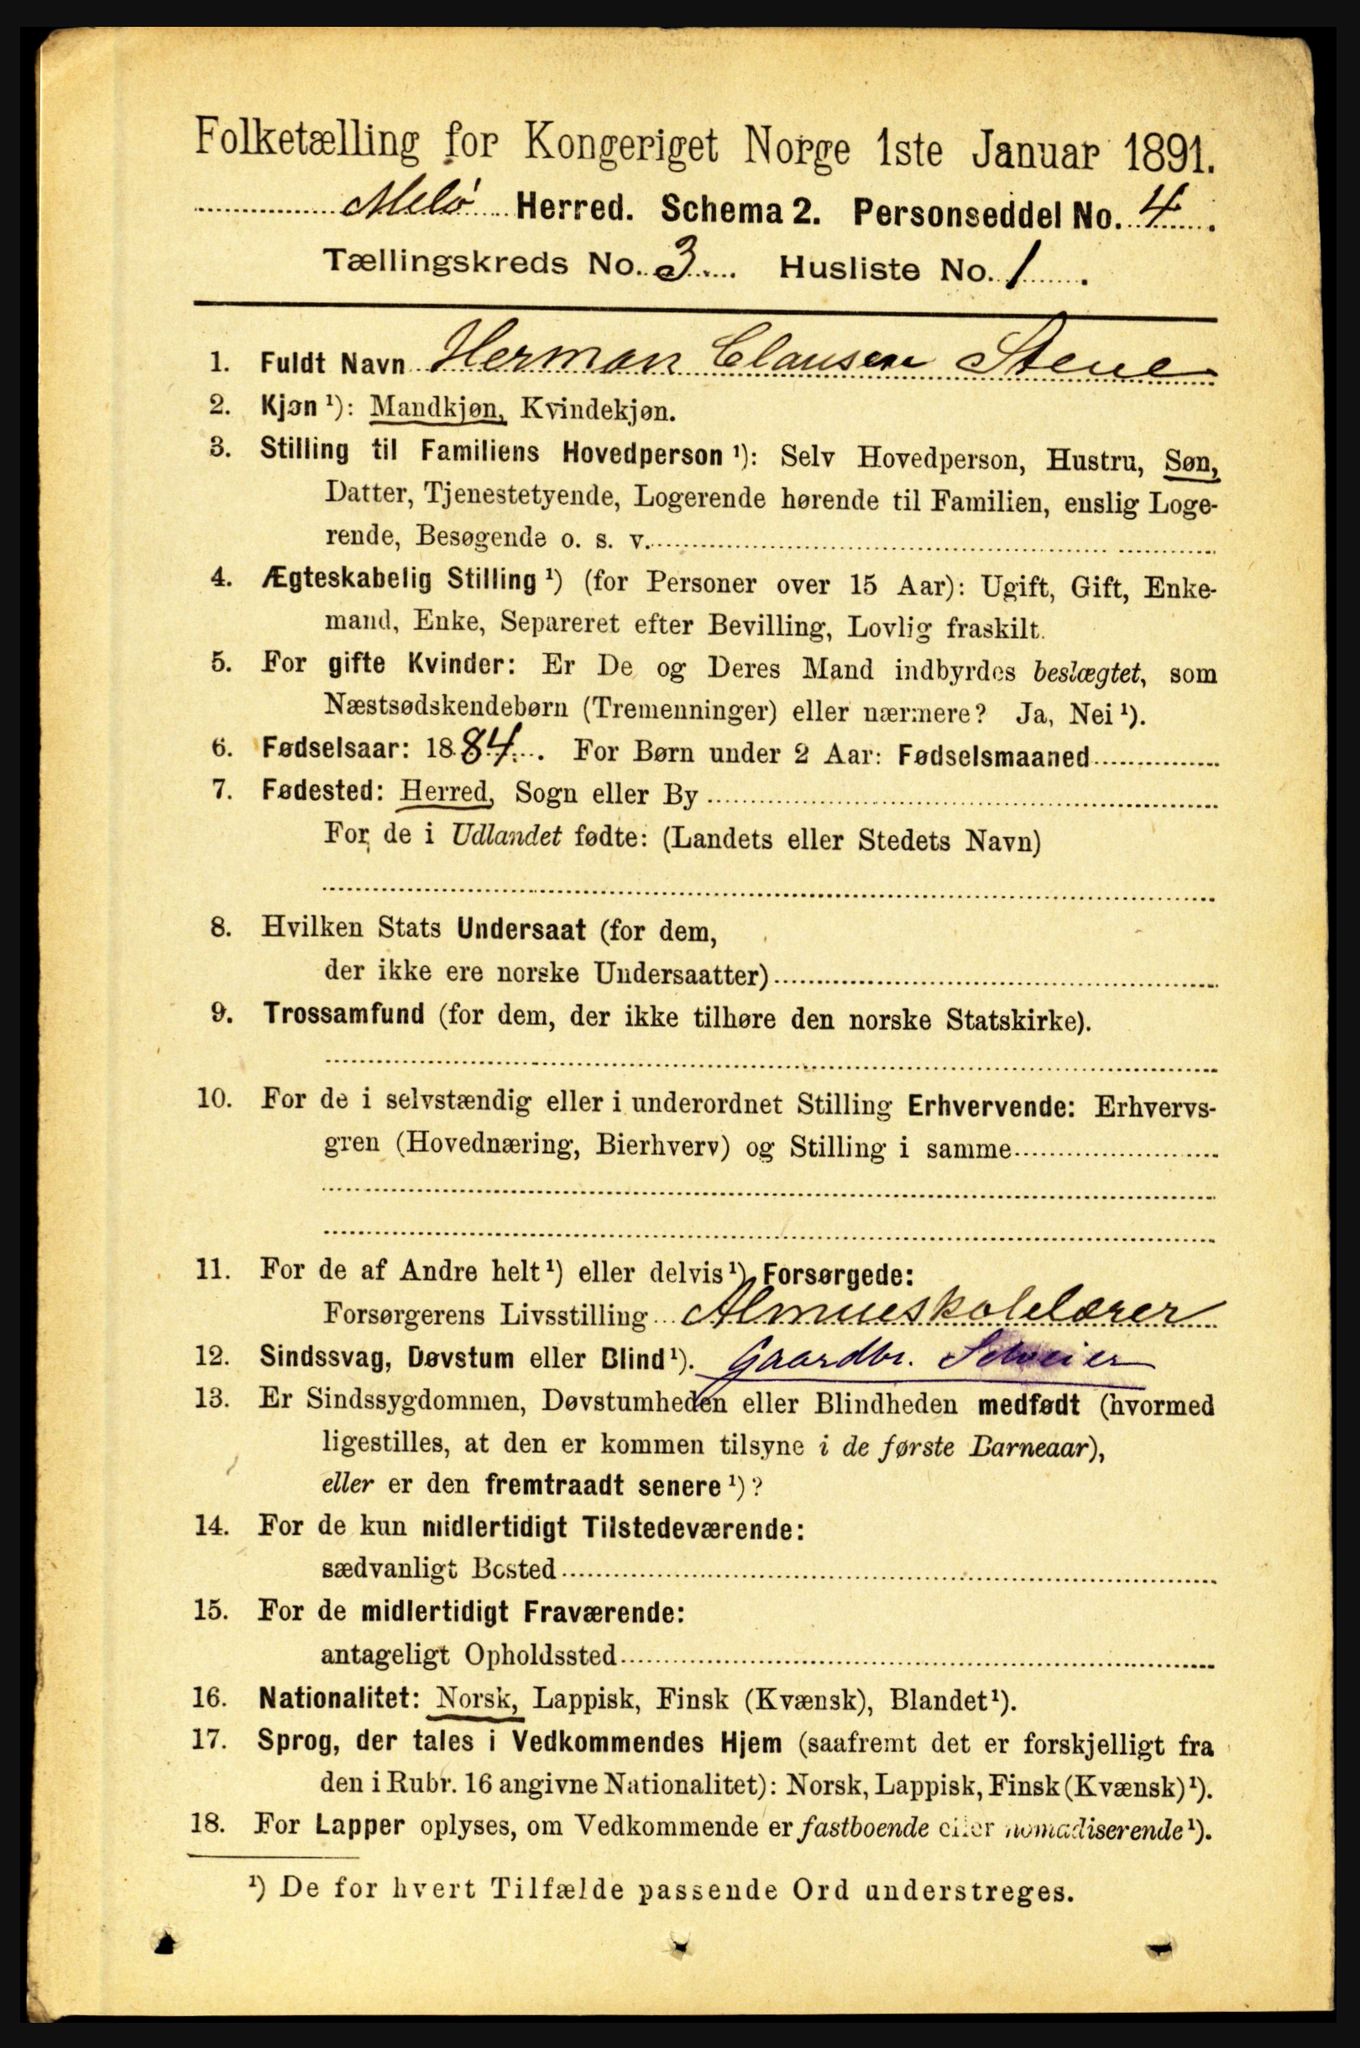 Folketælling for Kongeriget Norge 1ste Januar 1891.
Melö Herred. Schema 2. Personseddel No. 4.
Tællingskreds No. 3. Husliste No. 1.
1. Fuldt Navn Herman Clausen Stene
2. Kjøn ¹): Mandkjøn, Kvindekjøn.
3. Stilling til Familiens Hovedperson ¹): Selv Hovedperson, Hustru, Søn,
Datter, Tjenestetyende, Logerende hørende til Familien, enslig Loge-
rende, Besøgende o. s. v.
4. Ægteskabelig Stilling ¹) (for Personer over 15 Aar): Ugift, Gift, Enke-
mand, Enke, Separeret efter Bevilling, Lovlig fraskilt.
5. For gifte Kvinder: Er De og Deres Mand indbyrdes beslægtet, som
Næstsødskendebørn (Tremenninger) eller nærmere? Ja, Nei ¹).
6. Fødselsaar: 1884. For Børn under 2 Aar: Fødselsmaaned
7. Fødested: Herred, Sogn eller By
For de i Udlandet fødte: (Landets eller Stedets Navn)
8. Hvilken Stats Undersaat (for dem,
der ikke ere norske Undersaatter)
9. Trossamfund (for dem, der ikke tilhøre den norske Statskirke).
10. For de i selvstændig eller i underordnet Stilling Erhvervende: Erhvervs-
gren (Hovednæring, Bierhverv) og Stilling i samme
11. For de af Andre helt ¹) eller delvis ¹) Forsørgede:
Forsørgerens Livsstilling Almueskolelærer
12. Sindssvag, Døvstum eller Blind ¹). Gaardbr. Selveier
13. Er Sindssygdommen, Døvstumheden eller Blindheden medfødt (hvormed
ligestilles, at den er kommen tilsyne i de første Barneaar),
eller er den fremtraadt senere ¹)?
14. For de kun midlertidigt Tilstedeværende:
sædvanligt Bosted
15. For de midlertidigt Fraværende:
antageligt Opholdssted
16. Nationalitet: Norsk, Lappisk, Finsk (Kvænsk), Blandet ¹).
17. Sprog, der tales i Vedkommendes Hjem (saafremt det er forskjelligt fra
den i Rubr. 16 angivne Nationalitet): Norsk, Lappisk, Finsk (Kvænsk) ¹).
18. For Lapper oplyses, om Vedkommende er fastboende eller nomadiserende ¹).
¹) De for hvert Tilfælde passende Ord understreges.